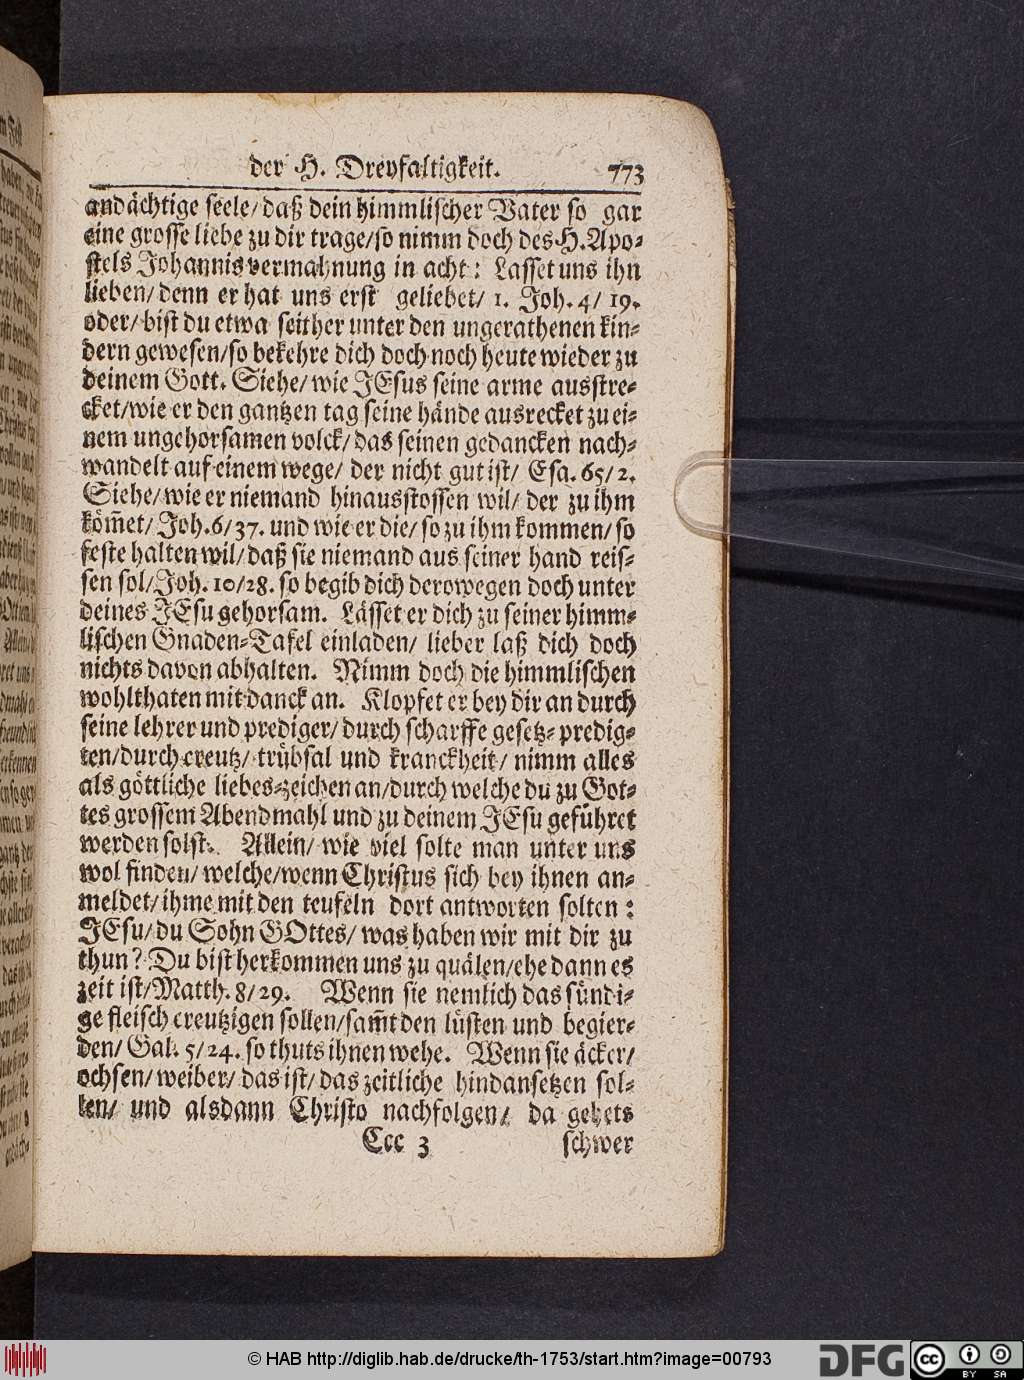 der H. Dreyfaltigkeit. 773
andächtige seele/ daß dein himmlischer Vater so gar
eine grosse liebe zu dir trage/ so nimm doch des H. Apo-
stels Johannis vermahnung in acht: Lasset uns ihn
lieben/ denn er hat uns erst geliebet/ 1. Joh. 4/ 19.
oder/ bist du etwa seither unter den ungerathenen kin-
dern gewesen/ so bekehre dich doch noch heute wieder zu
deinem Gott. Siehe/ wie JEsus seine arme ausstre-
cket/ wie er den gantzen tag seine hände ausrecket zu ei-
nem ungehorsamen volck/ das seinen gedancken nach-
wandelt auf einem wege/ der nicht gut ist/ Esa. 65/ 2.
Siehe/ wie er niemand hinausstossen wil/ der zu ihm
köm̃et/ Joh. 6/ 37. und wie er die/ so zu ihm kommen/ so
feste halten wil/ daß sie niemand aus seiner hand reis-
sen sol/ Joh. 10/ 28. so begib dich derowegen doch unter
deines JEsu gehorsam. Lässet er dich zu seiner himm-
lischen Gnaden-Tafel einladen/ lieber laß dich doch
nichts davon abhalten. Nimm doch die himmlischen
wohlthaten mit danck an. Klopfet er bey dir an durch
seine lehrer und prediger/ durch scharffe gesetz-predig-
ten/ durch creutz/ trübsal und kranckheit/ nimm alles
als göttliche liebes-zeichen an/ durch welche du zu Got-
tes grossem Abendmahl und zu deinem JEsu geführet
werden solst. Allein/ wie viel solte man unter uns
wol finden/ welche/ wenn Christus sich bey ihnen an-
meldet/ ihme mit den teufeln dort antworten solten:
JEsu/ du Sohn GOttes/ was haben wir mit dir zu
thun? Du bist herkommen uns zu quälen/ ehe dann es
zeit ist/ Matth. 8/ 29. Wenn sie nemlich das sündi-
ge fleisch creutzigen sollen/ sam̃t den lüsten und begier-
den/ Gal. 5/ 24. so thuts ihnen wehe. Wenn sie äcker/
ochsen/ weiber/ das ist/ das zeitliche hindansetzen sol-
len/ und alsdann Christo nachfolgen/ da gehets
Ccc 3 schwer
© HAB http://diglib.hab.de/drucke/th-1753/start.htm?image=00793
DFG
cc BY SA